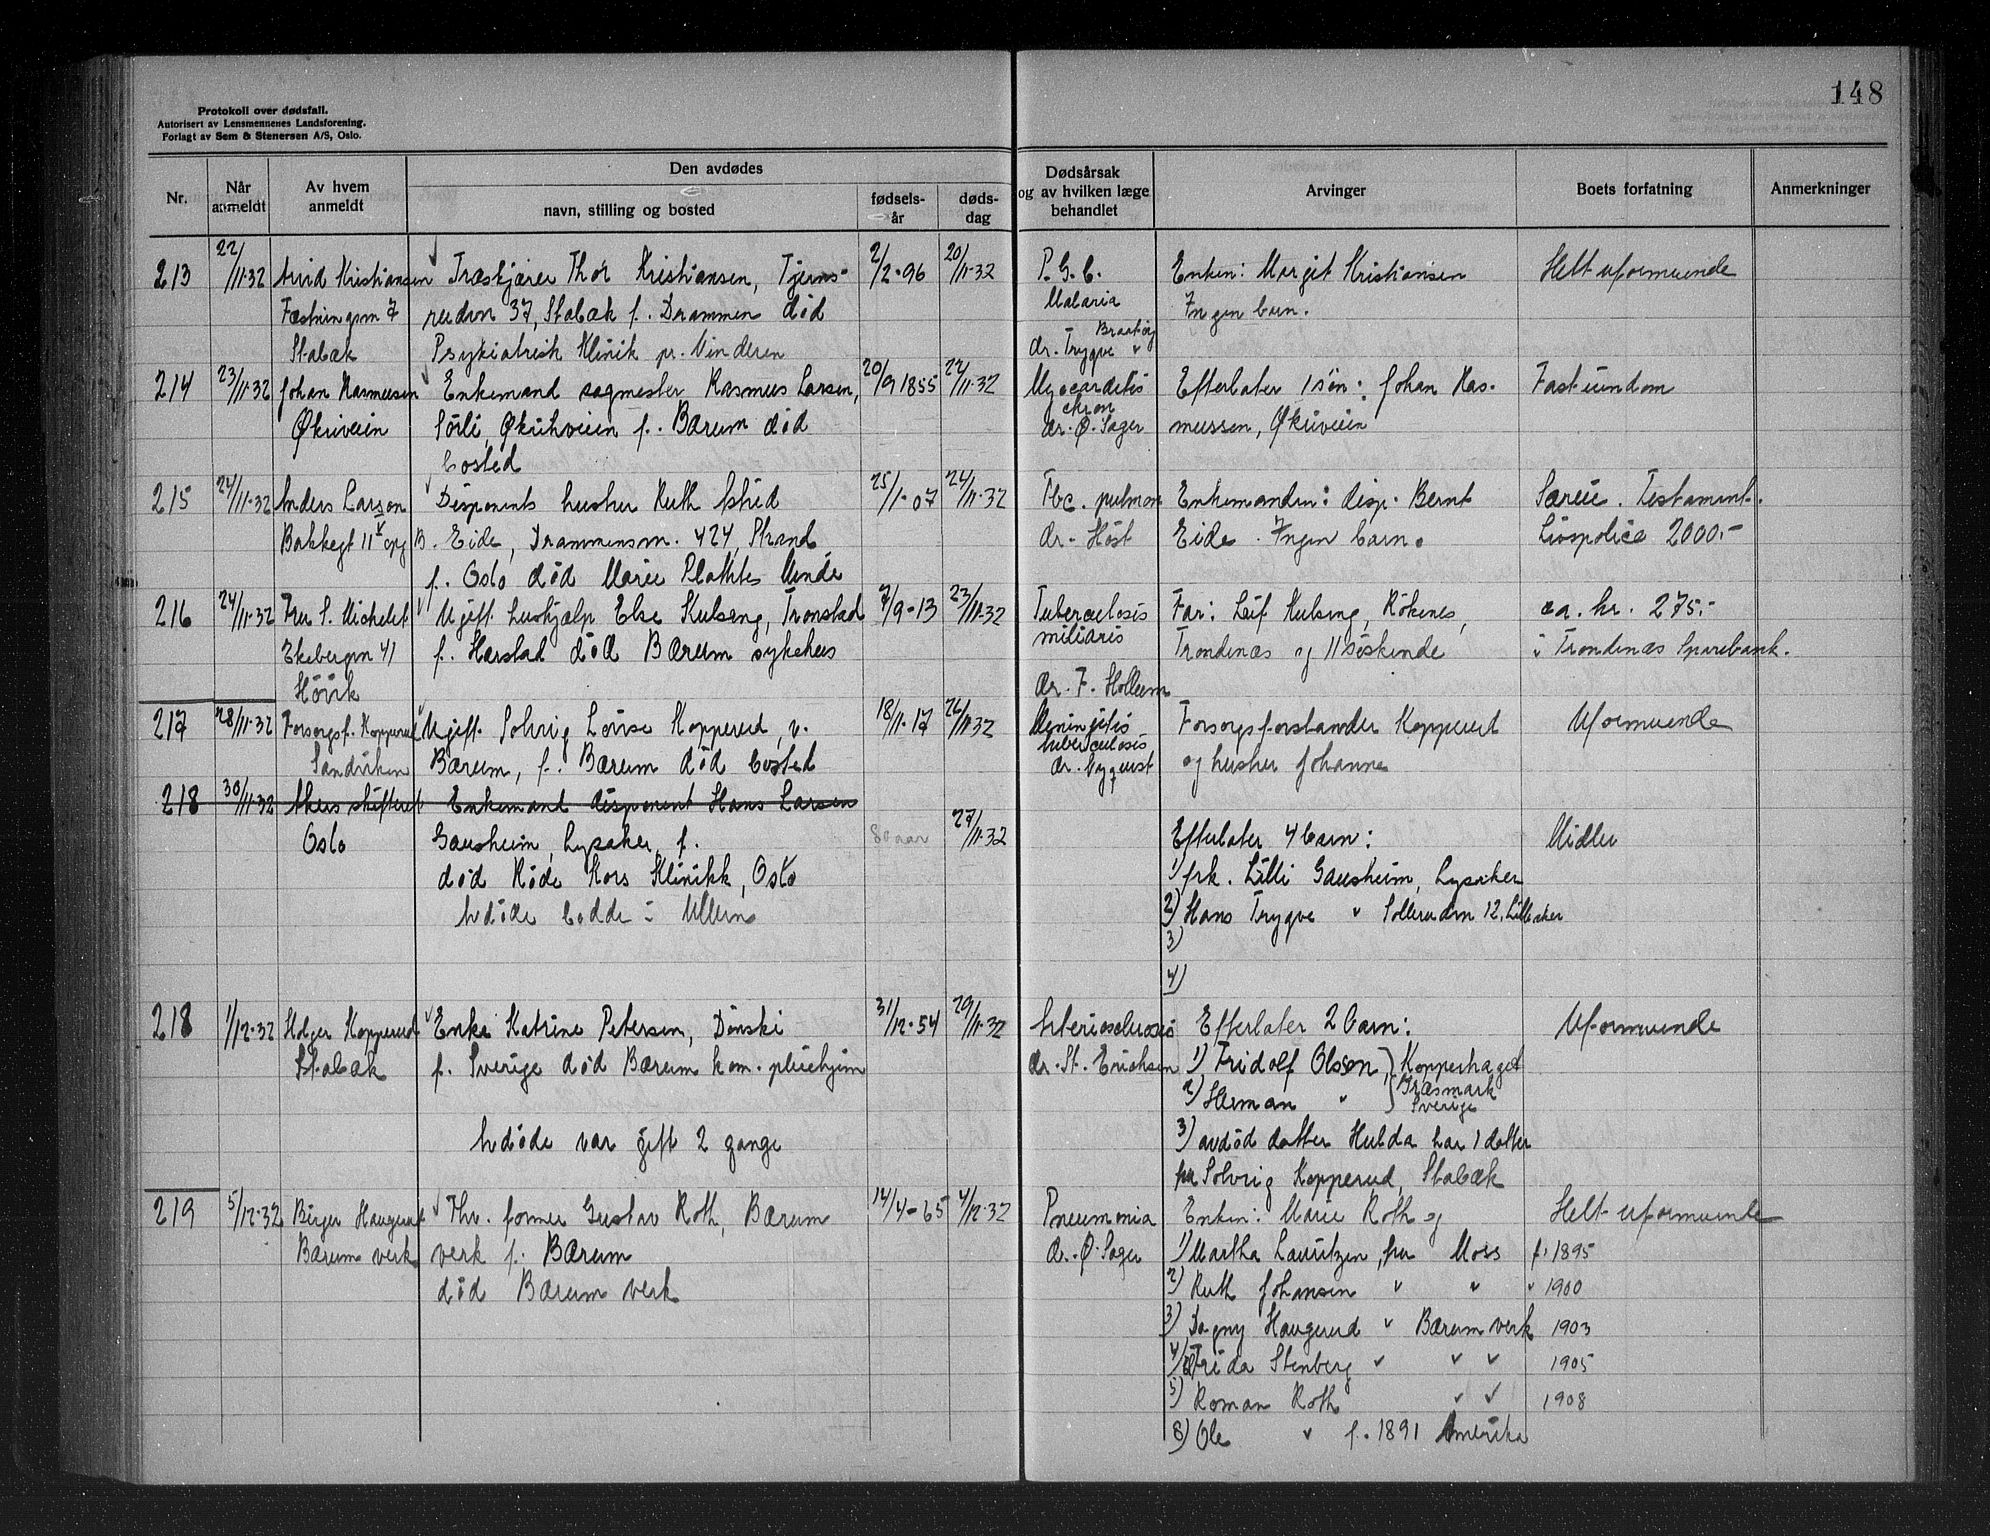 148
Protokoll over dødsfall.
Autorisert av Lensmennenes Landsforening.
Forlagt av Sem & Stenersen A/S, Oslo.
Nr.
Når anmeldt
Av hvem anmeldt
Den avdødes
navn, stilling og bosted
fødselsår
dødsdag
Dødsårsak og av hvilken læge behandlet
Arvinger
Boets forfatning
Anmerkninger
213 22/11-32 Arvid Kristiansen Træskjærer Thor Kristiansen, Tjerns- 2/2-96 20/11-32 P.G.C. Enken: Margit Kristiansen Helt uformuende
7 rudvn 37, Stabæk f. Drammen död Malaria Ingen barn.
Stabæk Psykiatrisk Klinik pr. Vinderen dr. Trygve Braatöy
214 23/11-32 Johan Rasmussen Enkemand sagmester Rasmus Larsen, 20/9 1855 22/11-32 Myocarditis Efterlater 1 sön: Johan Ras- Fast eiendom
Økriveien Sörli, Økrihveien f. Bærum död chron dr. Ø. Sager mussen, Økriveien
bosted
215 24/11-32 Anders Larson Disponents hustru Ruth 25/1-07 24/11-32 Tbc. pulmon Enkemanden: disp. Bernt Særeie. Testament.
Bakkegt 11 B. Eide, Drammensvn. 424, Strand dr. Höst Eide. Ingen barn. Livspolice 2000.-
f. Oslo död Marie Plathes Minde
216 24/11-32 Fru S. Michelet Ugift hushjælp Else Kulseng, Tronstad 7/9-13 23/11-32 Tuberculosis Far: Leif Kulseng, Rökenes, ca. kr. 275.-
Ekebergvn 41 f. Harstad död Bærum sykehus miliaris Trondenæs og 11 söskende i Trondenæs Sparebank.
Hövik dr. F. Holleum
217 28/11-32 Forsorgsf. Kopperud Ugift Solveig Lovise Kopperud, v. 18/11-17 26/11-32 Meningitis Forsorgsforstander Kopperud Uformuende
Sandviken Bærum, f. Bærum död bosted tuberculosis. dr. Nyquist og hustru Johanne
218 30/11-32 Akers skifterett Enkemand disponent Hans Larsen
Oslo Gausheim, Lysaker, f. 80 aar 27/11-32 Efterlater 4 barn: Midler
död Röde Kors Klinikk, Oslo 1) frk. Lilli Gausheim, Lysaker
Avdöde bodde i Ullern 2) Hans Trygve " Sollerudvn 12, Lilleaker
3)
4)
218 1/12-32 Holger Kopperud Enke Katrine Petersen, Dönski 31/12-54 29/11-32 Arteriosclerosis Efterlater 2 barn: Uformuende
Stabæk f. Sverige död Bærum kom. pleiehjem dr. St. Erichsen 1) Fridolf Olsson, Kopperhaget
2) Herman " Græsmark Sverige
Avdöde var gift 2 gange 3) avdöd datter Hulda har 1 datter
fru Solveig Kopperud, Stabæk
219 5/12-32 Birger Haugerud Thv. former Gustav Roth, Bærum 14/4-65 4/12-32 Pneumonia Enken: Marie Roth og Helt uformuende
Bærum verk verk f. Bærum dr. Ø. Sager 1) Martha Lauritzen, fru Moss f. 1895
död Bærum verk 2) Ruth Johansen " " " 1900
3) Dagny Haugerud " Bærum verk 1903
4) Frida Stenberg " " " 1905
5) Roman Roth " " 1908
8) Ole " f. 1891 Amerika